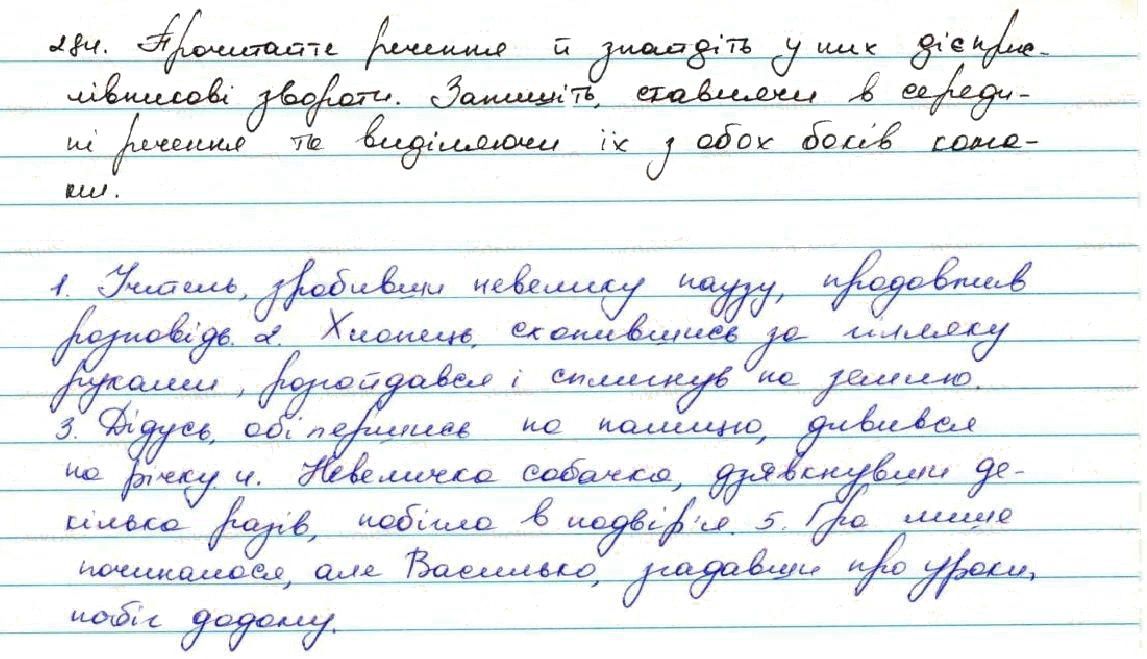 284. Прочитайте речення й знайдіть у них дієприс-
лівникові звороти. Запишіть, ставлячи в середи-
ні речення та виділяючи їх з обох боків кома-
ми.
1. Учитель, зробивши невелику паузу, продовжив
розповідь. 2. Хлопець, схопившись за гілляку
руками, розгойдався і сплигнув на землю.
3. Дідусь, обіпершись на палицю, дивився
на річку. 4. Невеличка собачка, дзявкнувши де-
кілька разів, побігла в подвір'я. 5. Гра лише
починалася, але Василько, згадавши про уроки,
побіг додому.